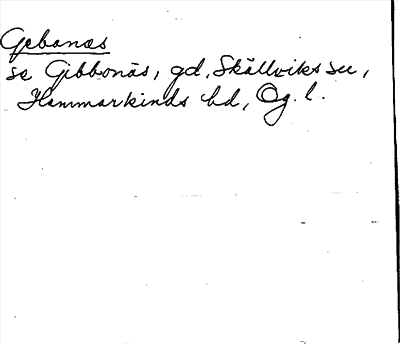 Gebonæs
se Gibbonäs, gd, Skällviks sn,
Hammarkinds hd, Ög. l.